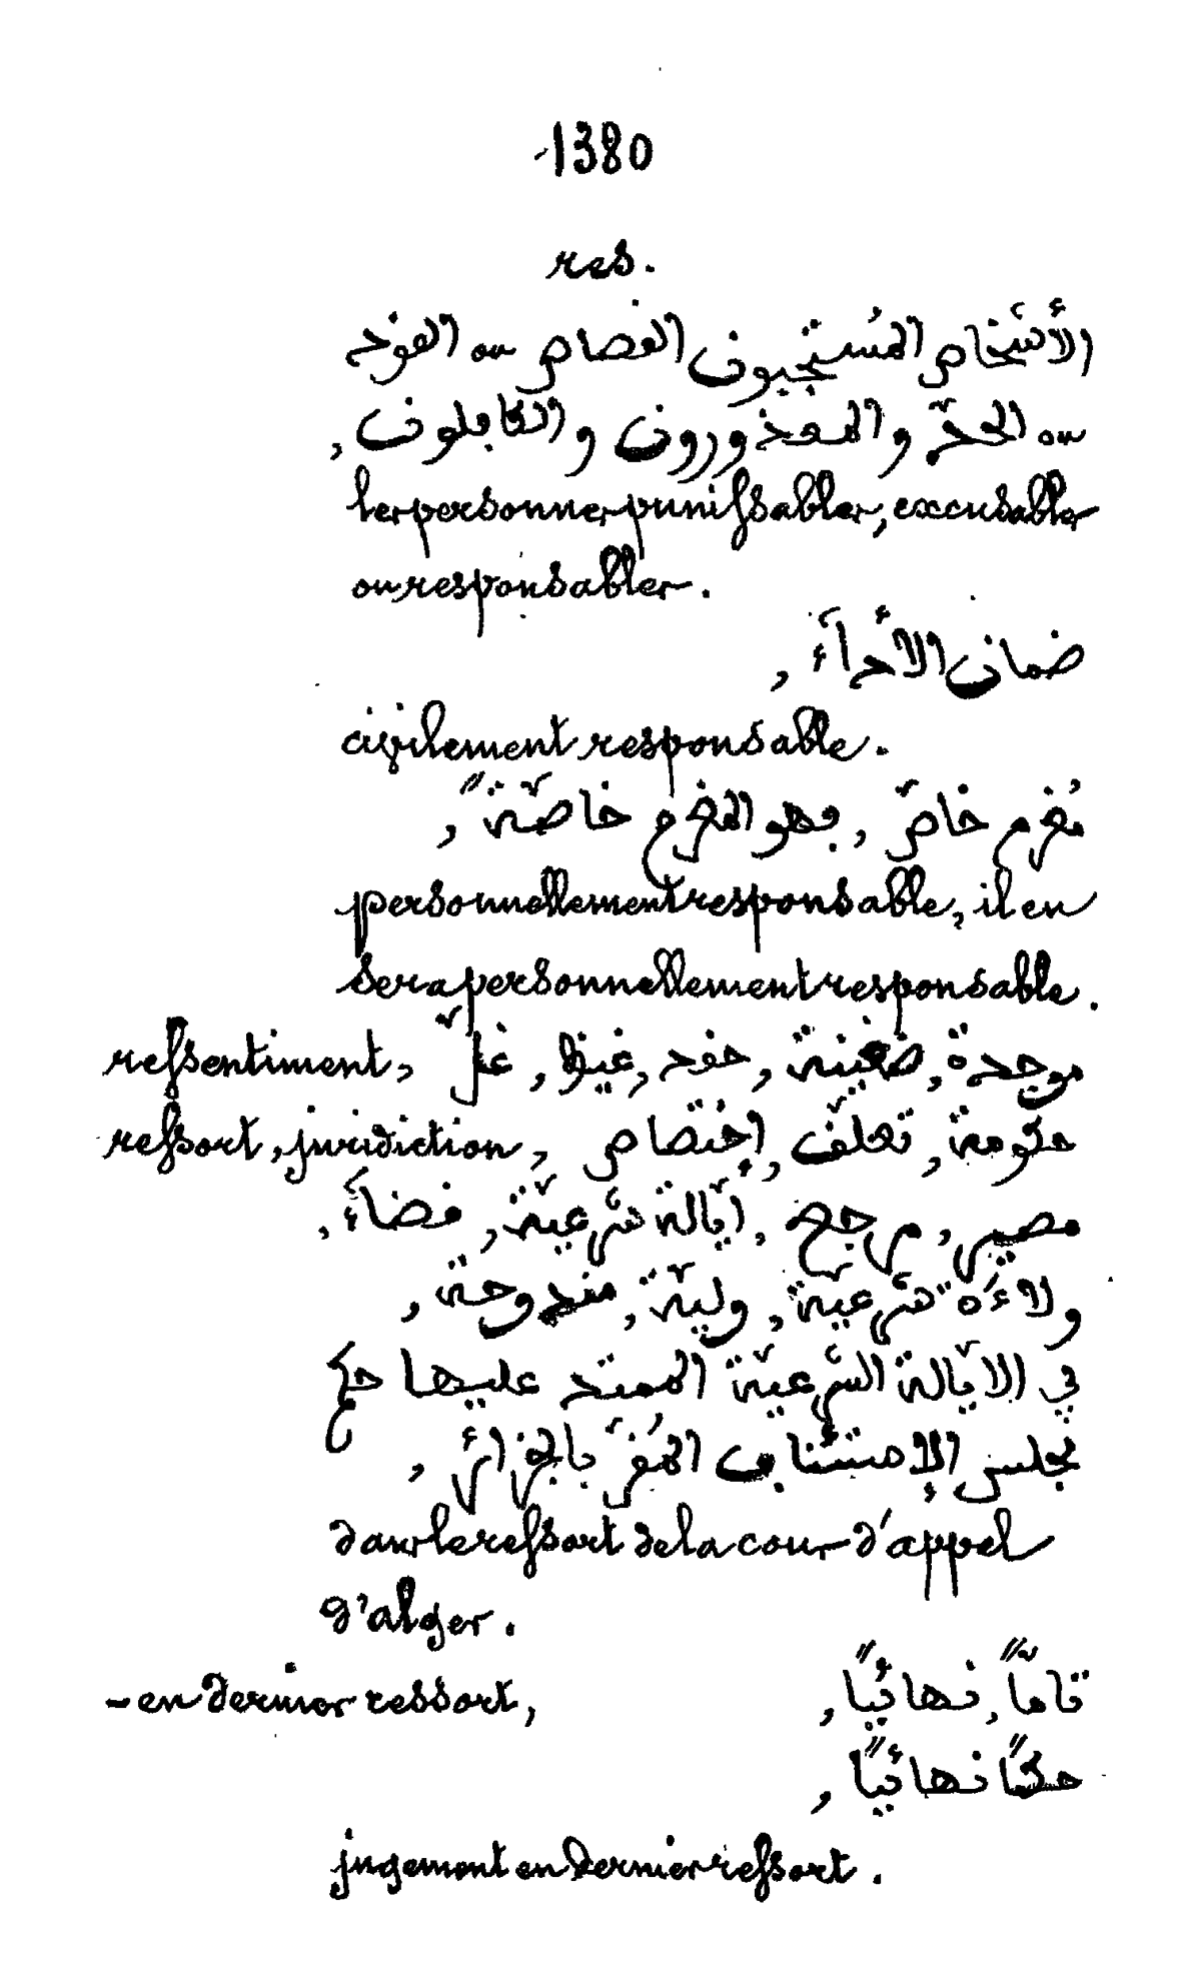 1380
res.
الأشخاص المستجيبون القصاص ou القود
ou الحدّ والمعذورون والكافلون,
les personnes punissables, excusables
ou responsables.
ضمان الأدآء,
civilement responsable.
مُغرم خاصّ, فهو المغرم خاصّةً,
personnellement responsable, il en
sera personnellement responsable.
ressentiment, موجدة, ضغينة, حقد, غيظ, غلّ
ressort, juridiction, حكومة, تعلّف, إختصاص
مصير, مرجع, أيّالة شرعيّة, قضآء,
ولاءة شرعيّة, وليّة, مندوحة,
في الايّالة الشرعيّة الممتد عليها حكم
مجلس الإستئناف المُقرّ بالجزائر,
dans le ressort de la cour d'appel
d'alger.
- en dernier ressort, تامّاً, نهائيّاً,
حكماً نهائيّاً,
jugement en dernier ressort.